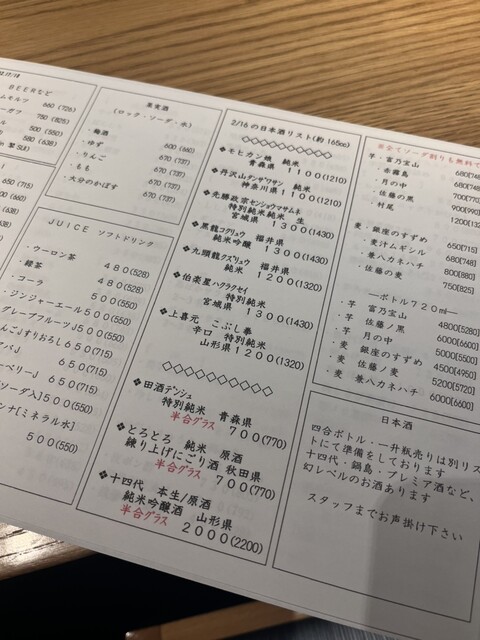 BEERなど
660(726)
750(825)
500(550)
580(638)
果実酒
(ロック・ソーダ・水)
・梅酒 600(660)
・ゆず 670(737)
・りんご 670(737)
・もも 670(737)
・大分のかぼす 670(737)
JUICE ソフトドリンク
・ウーロン茶 480(528)
・緑茶 480(528)
・コーラ 500(550)
・ジンジャーエール500(550)
グレープフルーツJ500(550)
んごJすりおろし650(715)
650(715)
ベリーJ 650(715)
ソーダ入]500(550)
ンナ[ミネラル水]
500(550)
2/16の日本酒リスト(約165cc)
◇◇◇◇◇◇◇◇◇◇
❖モヒカン娘 純米
青森県 1100(1210)
❖丹沢山タンザワサン 純米
神奈川県1100(1210)
❖先勝政宗センショウマサムネ
特別純米純米 生
宮城県 1300(1430)
❖黒龍コクリュウ 福井県
純米吟醸 1300(1430)
❖九頭龍クズリュウ 福井県
純米 1200(1320)
❖伯楽星ハクラクセイ
特別純米
宮城県 1300(1430)
❖上喜元 こぶし拳
辛口 特別純米
山形県1200(1320)
◇◇◇◇◇◇◇◇◇◇
❖田酒デンシュ
特別純米 青森県
半合グラス 700(770)
❖とろとろ 純米 原酒
練り上げにごり酒 秋田県
半合グラス 700(770)
❖十四代 本生/原酒
純米吟醸酒 山形県
半合グラス 2000(2200)
※全てソーダ割りも無料で
芋・富乃宝山 680(748
・赤霧島 680(748
・月の中 700(770
・佐藤の黒 900(990
・村尾 1200(132
麦・銀座のすずめ 650[715]
・麦汁ムギシル 680(748)
・兼八カネハチ 800[880]
・佐藤の麦 750[825]
―ボトル720ml―
・芋 富乃宝山 4800[5280]
・芋 佐藤ノ黒 6000[6600]
・芋 月の中 5000[5500]
・麦 銀座のすずめ 4500[4950]
・麦 佐藤ノ麦 5200[5720]
・麦 兼八カネハチ 6000[6600]
日本酒
四合ボトル・一升瓶売りは別リス
トにて準備をしております
十四代・鍋島・プレミア酒など、
幻レベルのお酒あります
スタッフまでお声掛け下さい